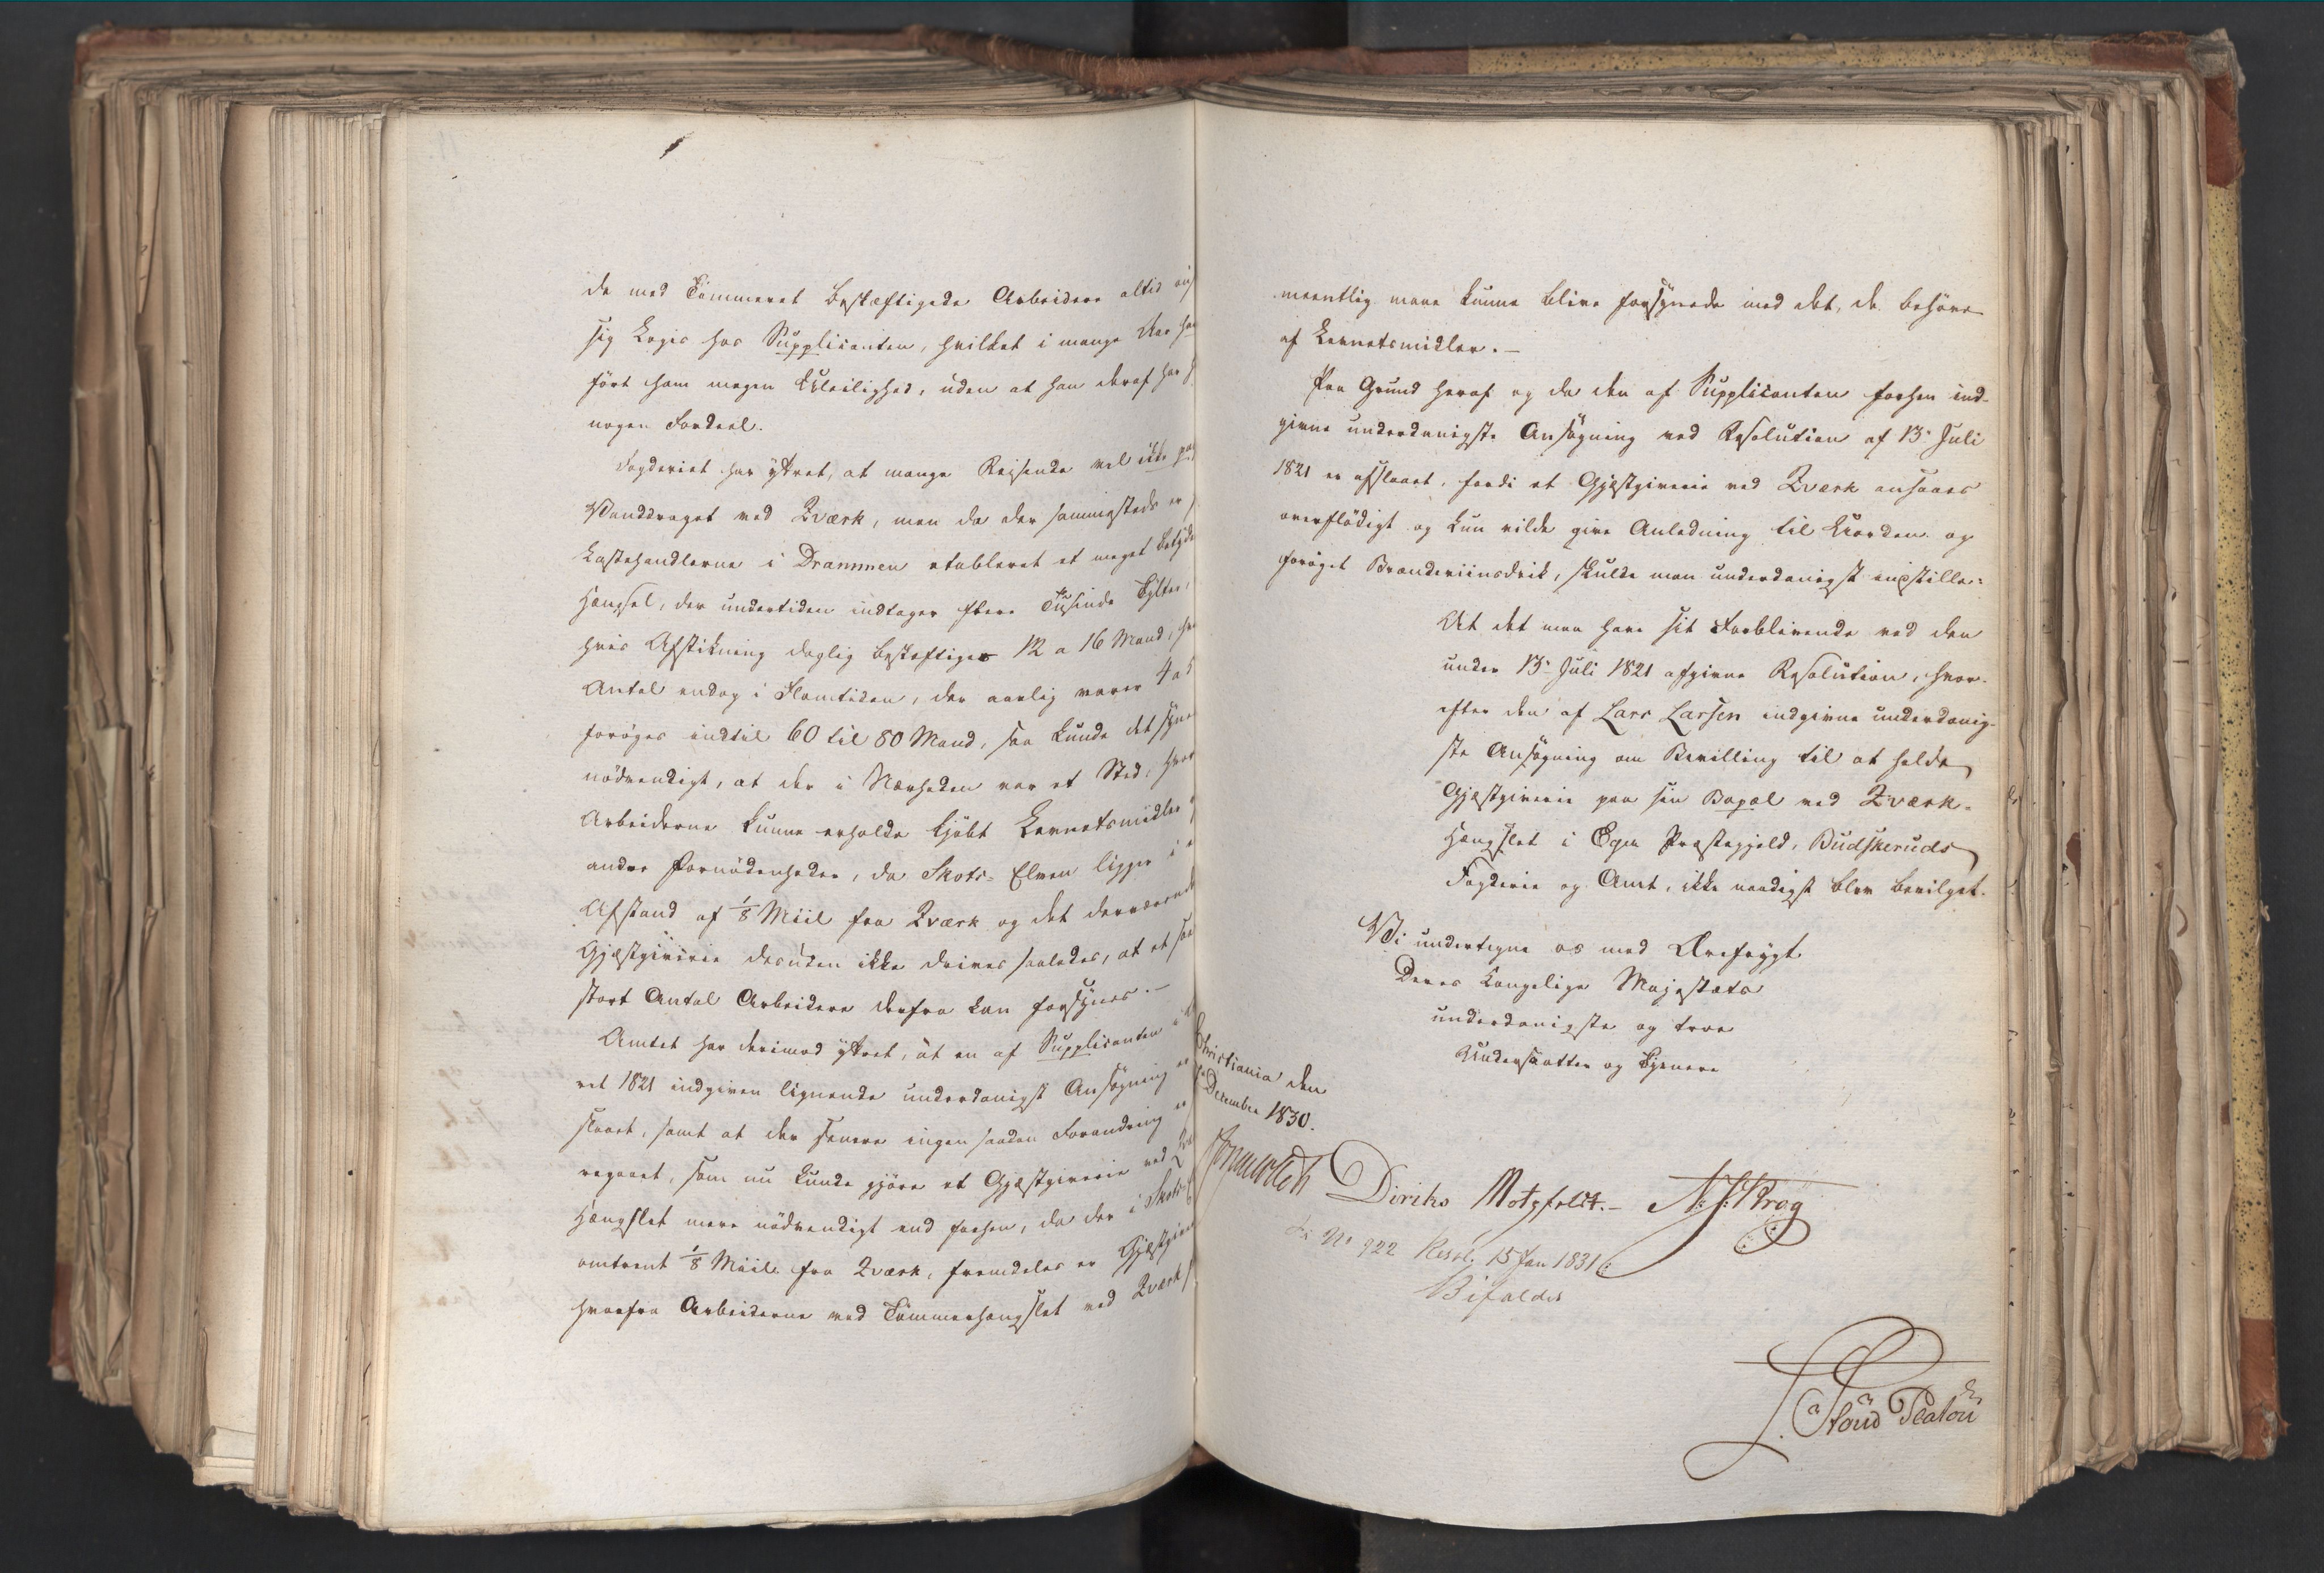 de med Tömmeret beskæftigede Arbeidere altid
sig Logis hos Supplicanten, hvilket i mange Aar
ført ham megen Uleilighed, uden at han deraf har
nogen Fordeel.
Fogderiet har yttret, at mange Reisende vel ikke
Vanddraget ved Zværk, men da der sammesteds er
Lasthandlerne i Drammen etableret et meget
Hængsel, der undertiden indtager flere Tusinde Tylter,
hvis Afstikning daglig beskæftiger 12 a 16 Mand,
Antal endog i Flomtiden, der aarlig varer 4 a 5
forøges indtil 60 til 80 Mand, saa kunde det
nödvendigt, at der i Nærheden var et Sted, hvor
Arbeiderne kunne erholde kjöbt Levnetsmidler
andre Fornödenheder, da Skots-Elven ligger i
Afstand af 1/8 Miil fra Zværk og det derværende
Gjæstgiverie desuden ikke drives saaledes, at et saa
stort Antal Arbeidere derfra kan forsynes.-
Amtet har derimod yttret, at en af Supplicanten
ret 1821 indgiven lignende underdanigst Ansögning er
slaaet, samt at der senere ingen saadan Forandring er
regaaet, som nu kunde gjöre et Gjæstgiverie ved
Hængslet mere nödvendigt end forhen, da der i Skots-
omtrent 1/8 Miil fra Zværk, fremdeles er
hvorfra Arbeiderne ved Tömmerhængslet ved Zværk
meentlig mene kunne blive forsynede med det, de behöve
af Levnetsmidler.-
Paa Grund heraf og da den af Supplicanten forhen ind-
givne underdanigste Ansögning ved Resolution af 13. Juli
1821 er afslaaet, fordi et Gjæstgiverie ved Zværk ansaaes
overflödigt og kun vilde give Anledning til Uorden og
foröget Brændeviinsdrik, skulde man underdanigst indstille:
At det maa have sit Forblivende ved den
under 13. Juli 1821 afgivne Resolution, hvor-
efter den af Lars Larsen indgivne underdanig-
ste Ansögning om Bevilling til at holde
Gjæstgiverie paa sin Bopæl ved Zværk-
Hængslet i Eger Præstegjeld, Budskeruds
Fogderie og Amt, ikke naadigst blev bevilget.
Vi undertegne os med Ærefrygt
Deres Kongelige Majestæts
underdanigste og troe
Undersaatter og Tjenere
Christiania den
December 1830.
Diriks Motzfeldt.- N. J. Krog
No 922 Resol. 15 Jan 1831
Bifaldes
Stoud Platou